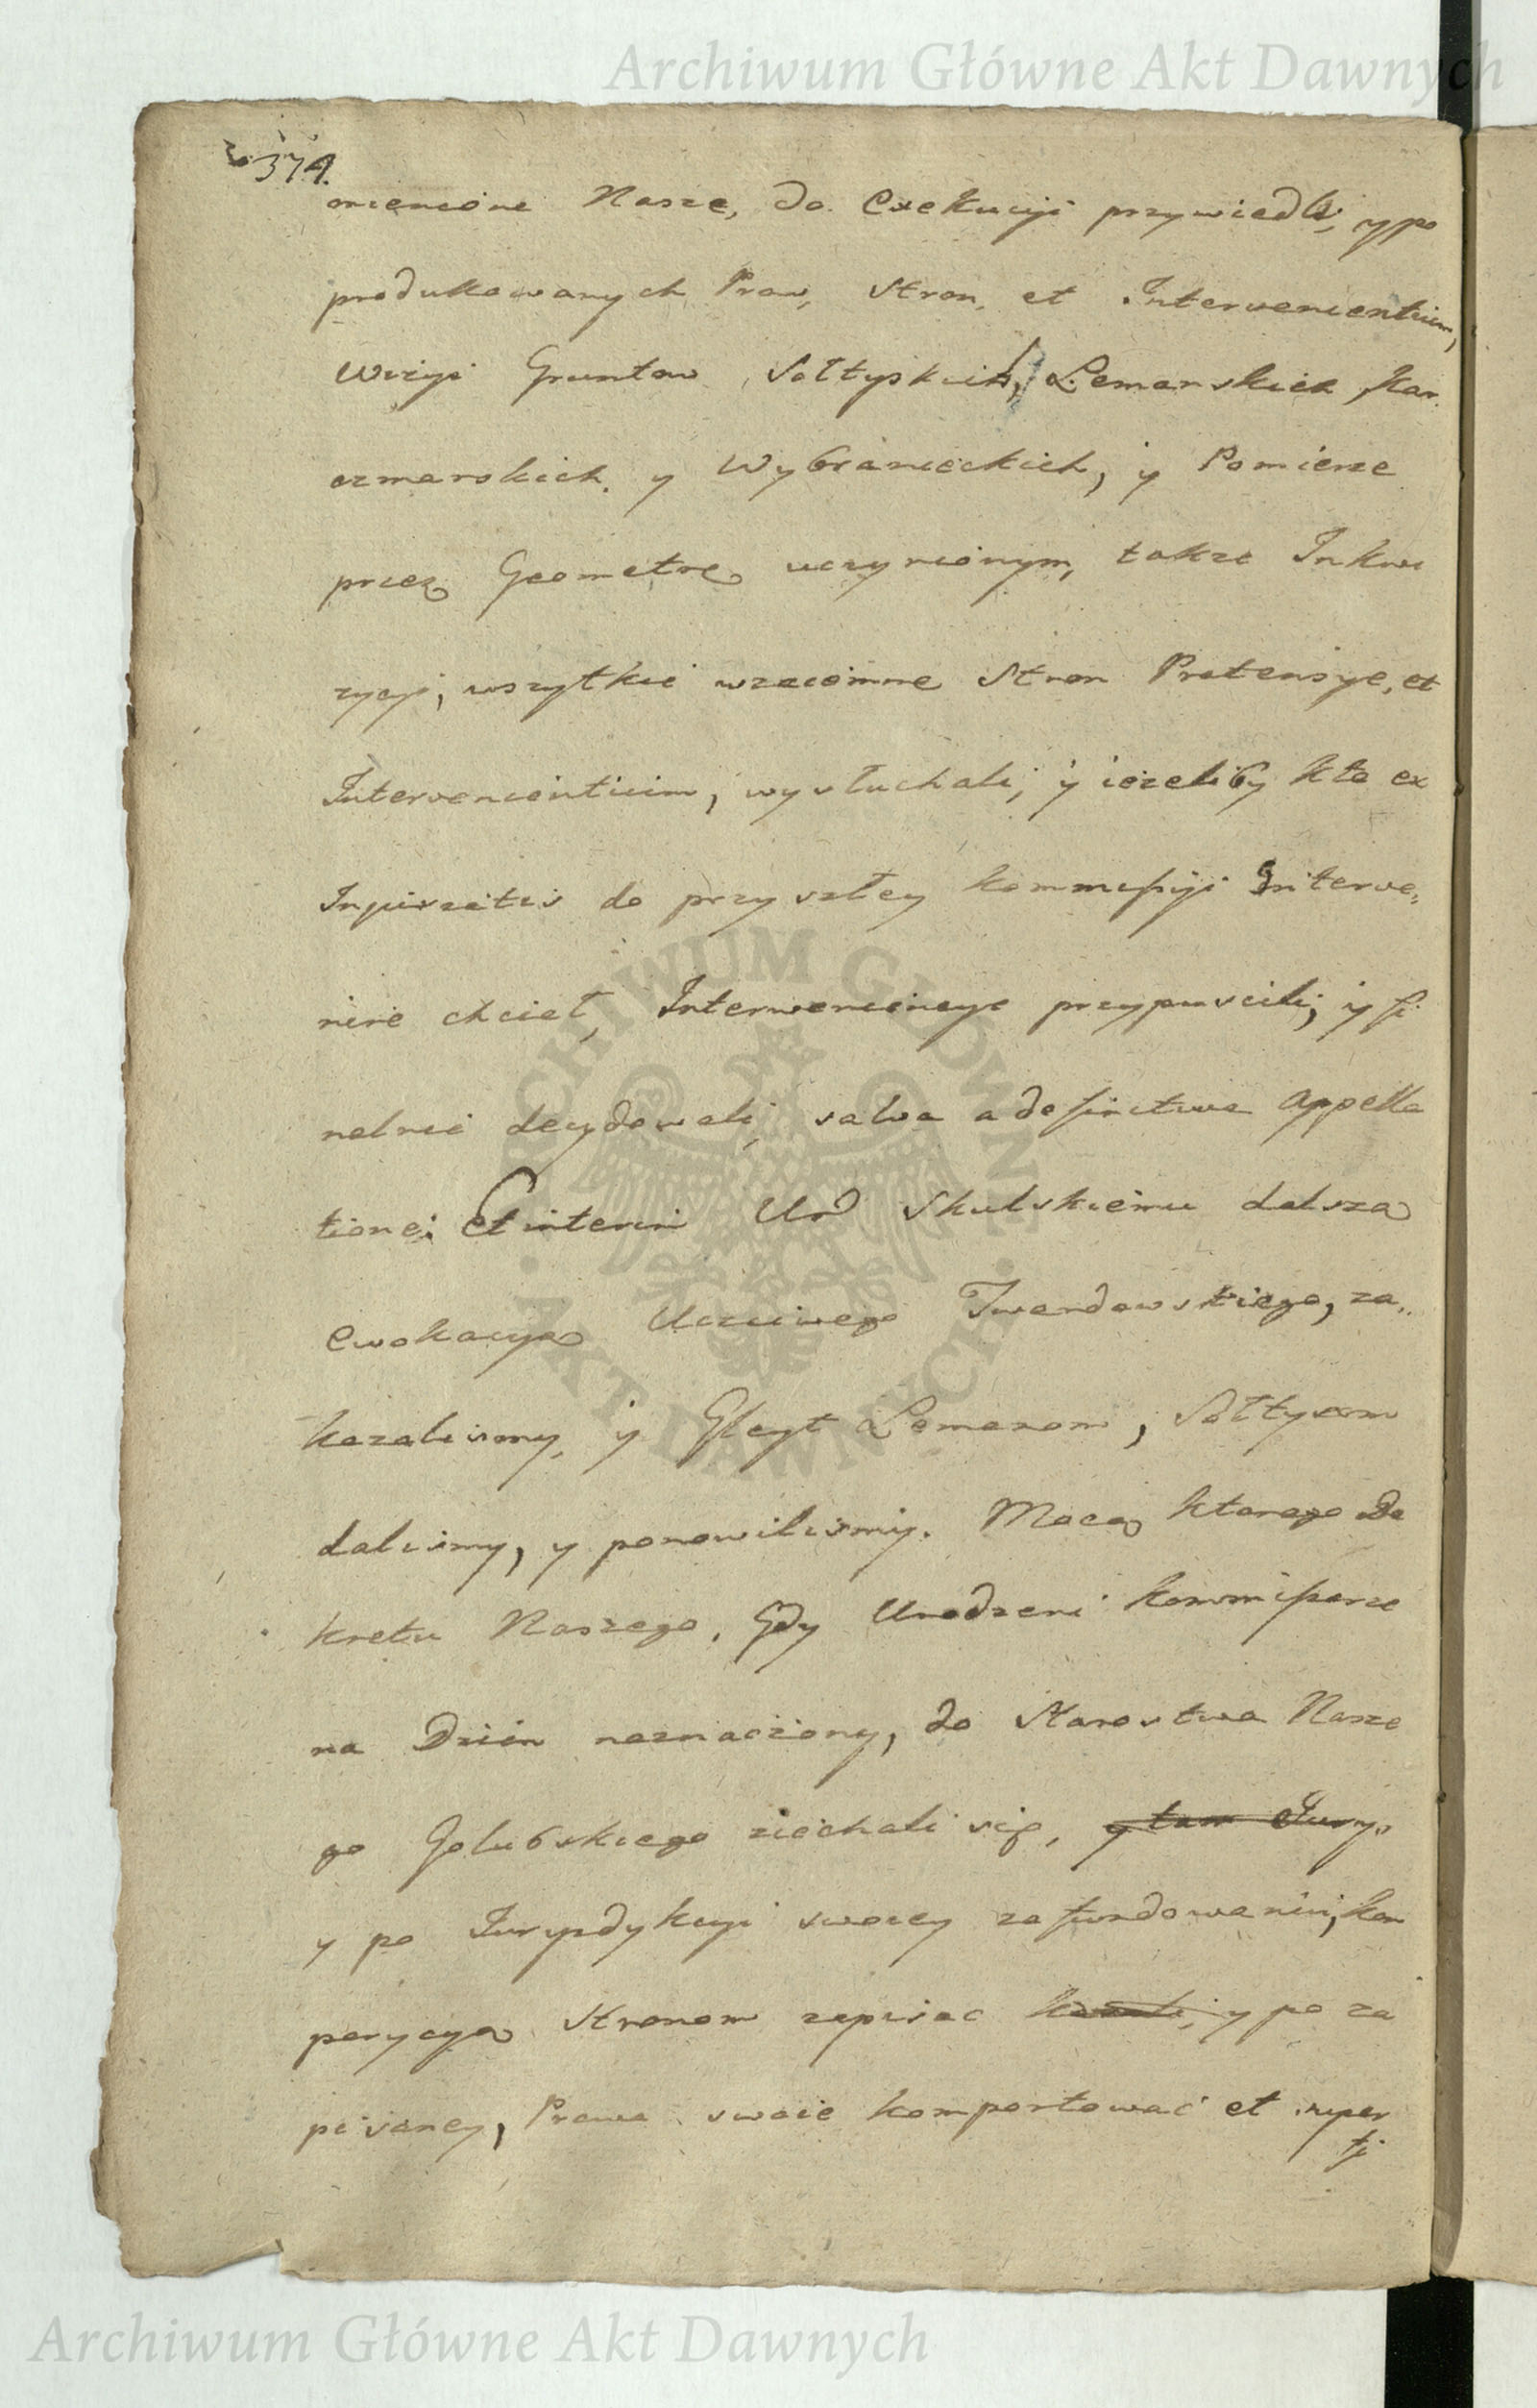 Archiwum Główne Akt Dawnych
374.
mienione Nasze, do Exekucyi przywiedli, y po
produkowanych Praw, Stron, et Intervenientium,
Wizyi Gruntow Sołtyskich, Lemanskich Kar
czmarskich y Wybranieckich, y Pomierze
przez Geometrę uczynionym, także Inkwi
zycyi, wszytkie wzaiemne Stron Pretensye, et
Intervenientium, wysłuchali, y ieżeliby kto ex
do przyszłey kommissyi Interve„
nire chciał, Interwencyje przypuscili, y fi
nalnie decydowali, salva a definitiva Appella
tione; Et interim Ur Skulskiemu dalszą
Ewokacyą Uczciwego Twardowskiego, za„
kazalismy, y Gleyt Lemanom, Sołtysom
dalismy, y ponowilismy. Mocą ktorego De
kretu Naszego, Gdy Urodzeni Kommissarze
na Dzień naznaczony, do Starostwa Nasze
go Golubskiego ziechali się, y tam Jurys
y po Jurysdykcyi swoiey zafundowaniu, kom
parycyą Stronom zapisać kazali, y po za
pisaney, Prawa swoie komportować et
AKT DAWNYCH
ARCHIWUM GŁÓWNE
Archiwum Główne Akt Dawnych